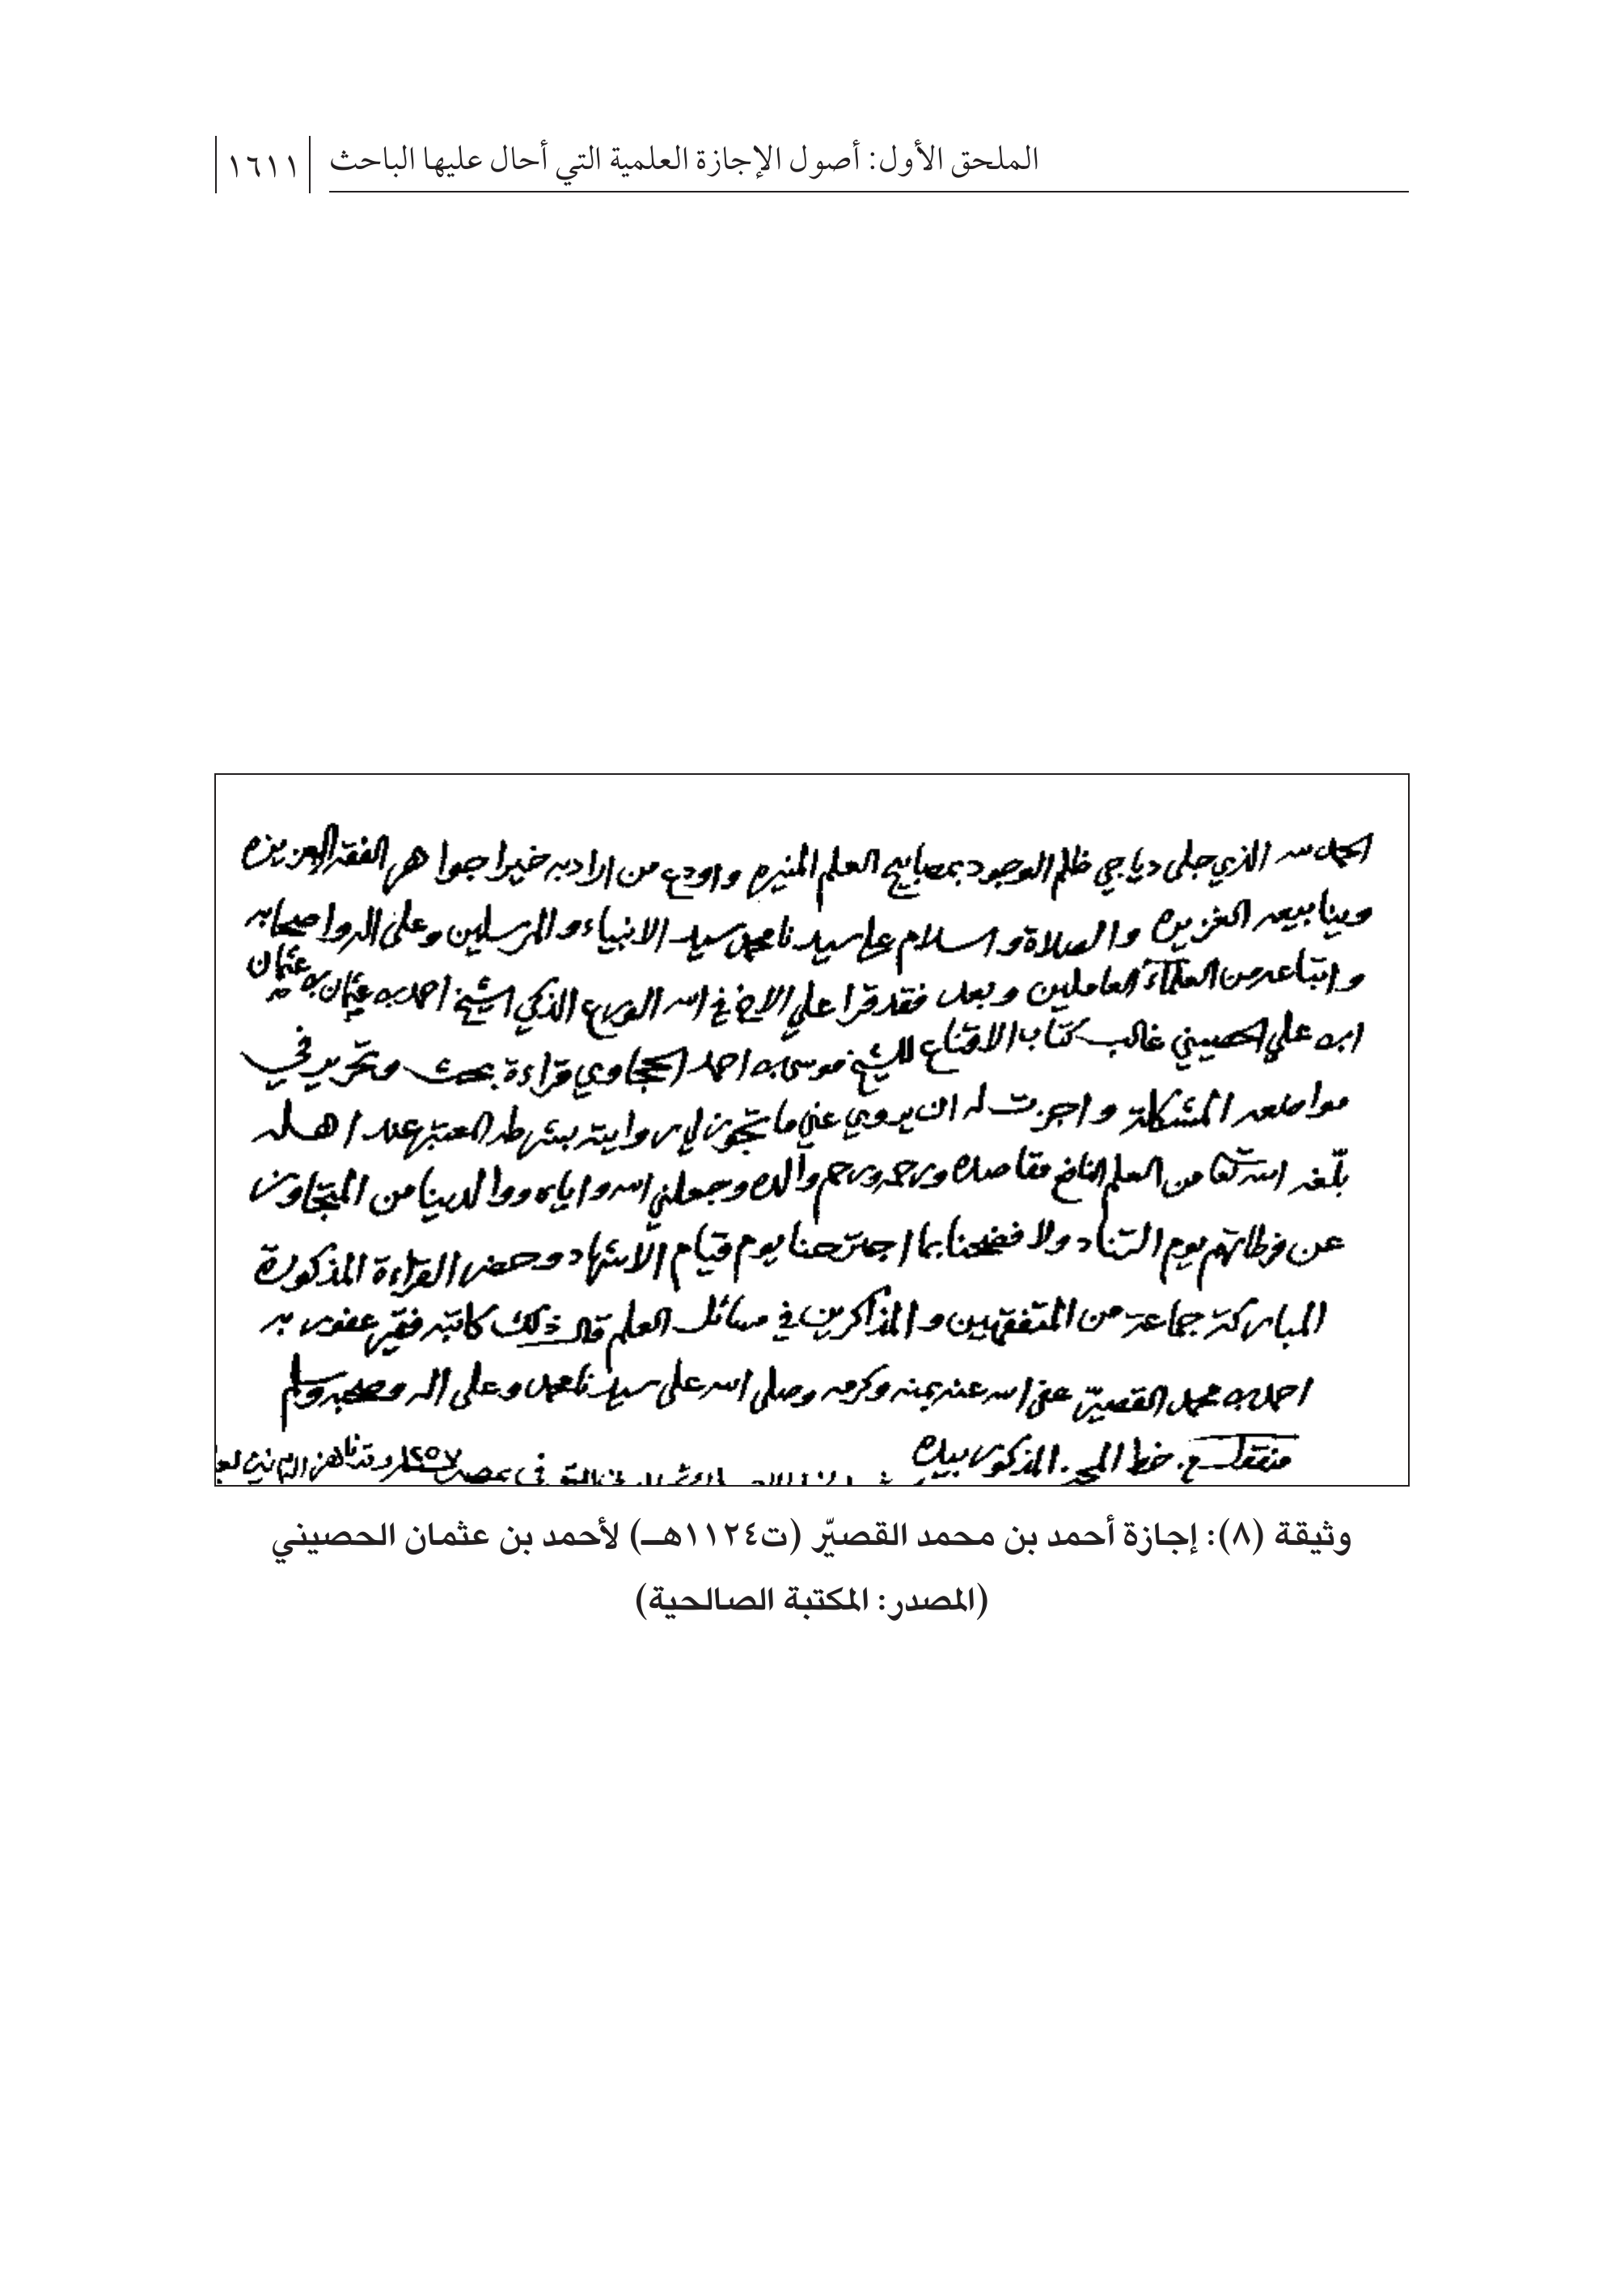 الملحق الأول: أصول الإجازة العلمية التي أحال عليها الباحث ١٦١١
الحمد لله الذي جلى دياجي ظلم الوجود بمصابيح العلم المنيره واودع من اراد به خيرا جواهر الفقه العزيزه
وينابيعه الغزيره والصلاة والسلام على سيدنا محمد سيد الانبياء والمرسلين وعلى اله واصحابه
واتباعه من العلماء العاملين وبعد فقد قرا علي الاخ في الله الورع الذكي الشيخ احمد بن عثمان بن عثمان
ابن علي الحصيني غالب كتاب الاقناع للشيخ موسى بن احمد الحجاوي قراءة بحث وتحرير في
مواضعه المشكلة واجزت له ان يروي عني ما تجوز لي روايته بشرطه المعتبر عند اهله
بلّغه الله تعالى من العلم النافع مقاصده ورحمه ورحم والده وجعلني الله واياه ووالدينا من المتجاوز
عن فرطاتهم يوم التناد ولا فضحنا بما اجترحنا يوم قيام الاشهاد وحضر القراءة المذكورة
المباركة جماعة من المتفقهين والمذاكرين في مسائل العلم قال ذلك كاتبه فقير عفو ربه
احمد بن محمد القصيّر عفى الله عنه بمنه وكرمه وصلى الله على سيدنا محمد وعلى اله وصحبه وسلم
خط المجيز المذكور بيده
وثيقة (٨): إجازة أحمد بن محمد القصيّر (ت١١٢٤هـ) لأحمد بن عثمان الحصيني
(المصدر: المكتبة الصالحية)